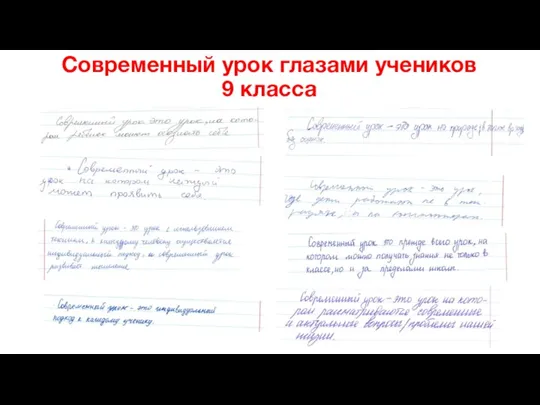 Современный урок глазами учеников
9 класса
Современный урок это урок, на кото-
ром ребенок может осознать себя
Современный урок - это
урок на котором каждый
может проявить себя.
Современный урок - это урок с использованием
техники, к каждому человеку осуществляется
индивидуальный подход, на современном уроке
развивают мышление.
Современный урок - это индивидуальный
подход к каждому ученику.
Современный урок - это урок на природе, в
Современный урок - это урок,
где дети работают не в
а за компьютером.
Современный урок это прежде всего урок, на
котором можно получать знания не только в
классе, но и за пределами школы.
Современный урок - это урок на кото-
ром рассматриваются современные
и актуальные вопросы/проблемы нашей
жизни.